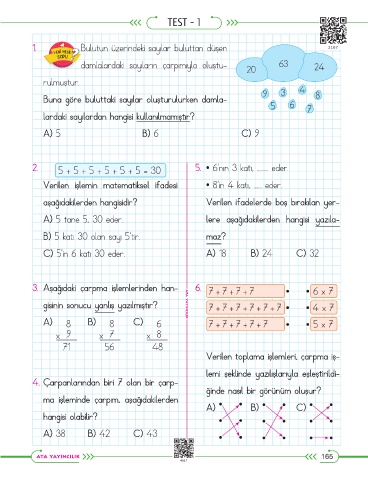 TEST - 1
1. YENİ NESİL SORU Bulutun üzerindeki sayılar buluttan düşen
damlalardaki sayıların çarpımıyla oluştu-
rulmuştur.
Buna göre buluttaki sayılar oluşturulurken damla-
lardaki sayılardan hangisi kullanılmamıştır?
A) 5 B) 6 C) 9
20 63 24
9 3 4 8
5 6 7
2. 5 + 5 + 5 + 5 + 5 + 5 = 30
Verilen işlemin matematiksel ifadesi
aşağıdakilerden hangisidir?
A) 5 tane 5, 30 eder.
B) 5 katı 30 olan sayı 5'tir.
C) 5'in 6 katı 30 eder.
3. Aşağıdaki çarpma işlemlerinden han-
gisinin sonucu yanlış yazılmıştır?
A) 8 B) 8 C) 6
x 9 x 7 x 8
71 56 48
4. Çarpanlarından biri 7 olan bir çarp-
ma işleminde çarpım, aşağıdakilerden
hangisi olabilir?
A) 38 B) 42 C) 43
5. • 6'nın 3 katı, ...... eder.
• 8'in 4 katı, ...... eder.
Verilen ifadelerde boş bırakılan yer-
lere aşağıdakilerden hangisi yazıla-
maz?
A) 18 B) 24 C) 32
6. 7 + 7 + 7 + 7 • • 6 x 7
7 + 7 + 7 + 7 + 7 + 7 • • 4 x 7
7 + 7 + 7 + 7 + 7 • • 5 x 7
Verilen toplama işlemleri, çarpma iş-
lemi şeklinde yazılışlarıyla eşleştirildi-
ğinde nasıl bir görünüm oluşur?
A) B) C)
ATA YAYINCILIK
165